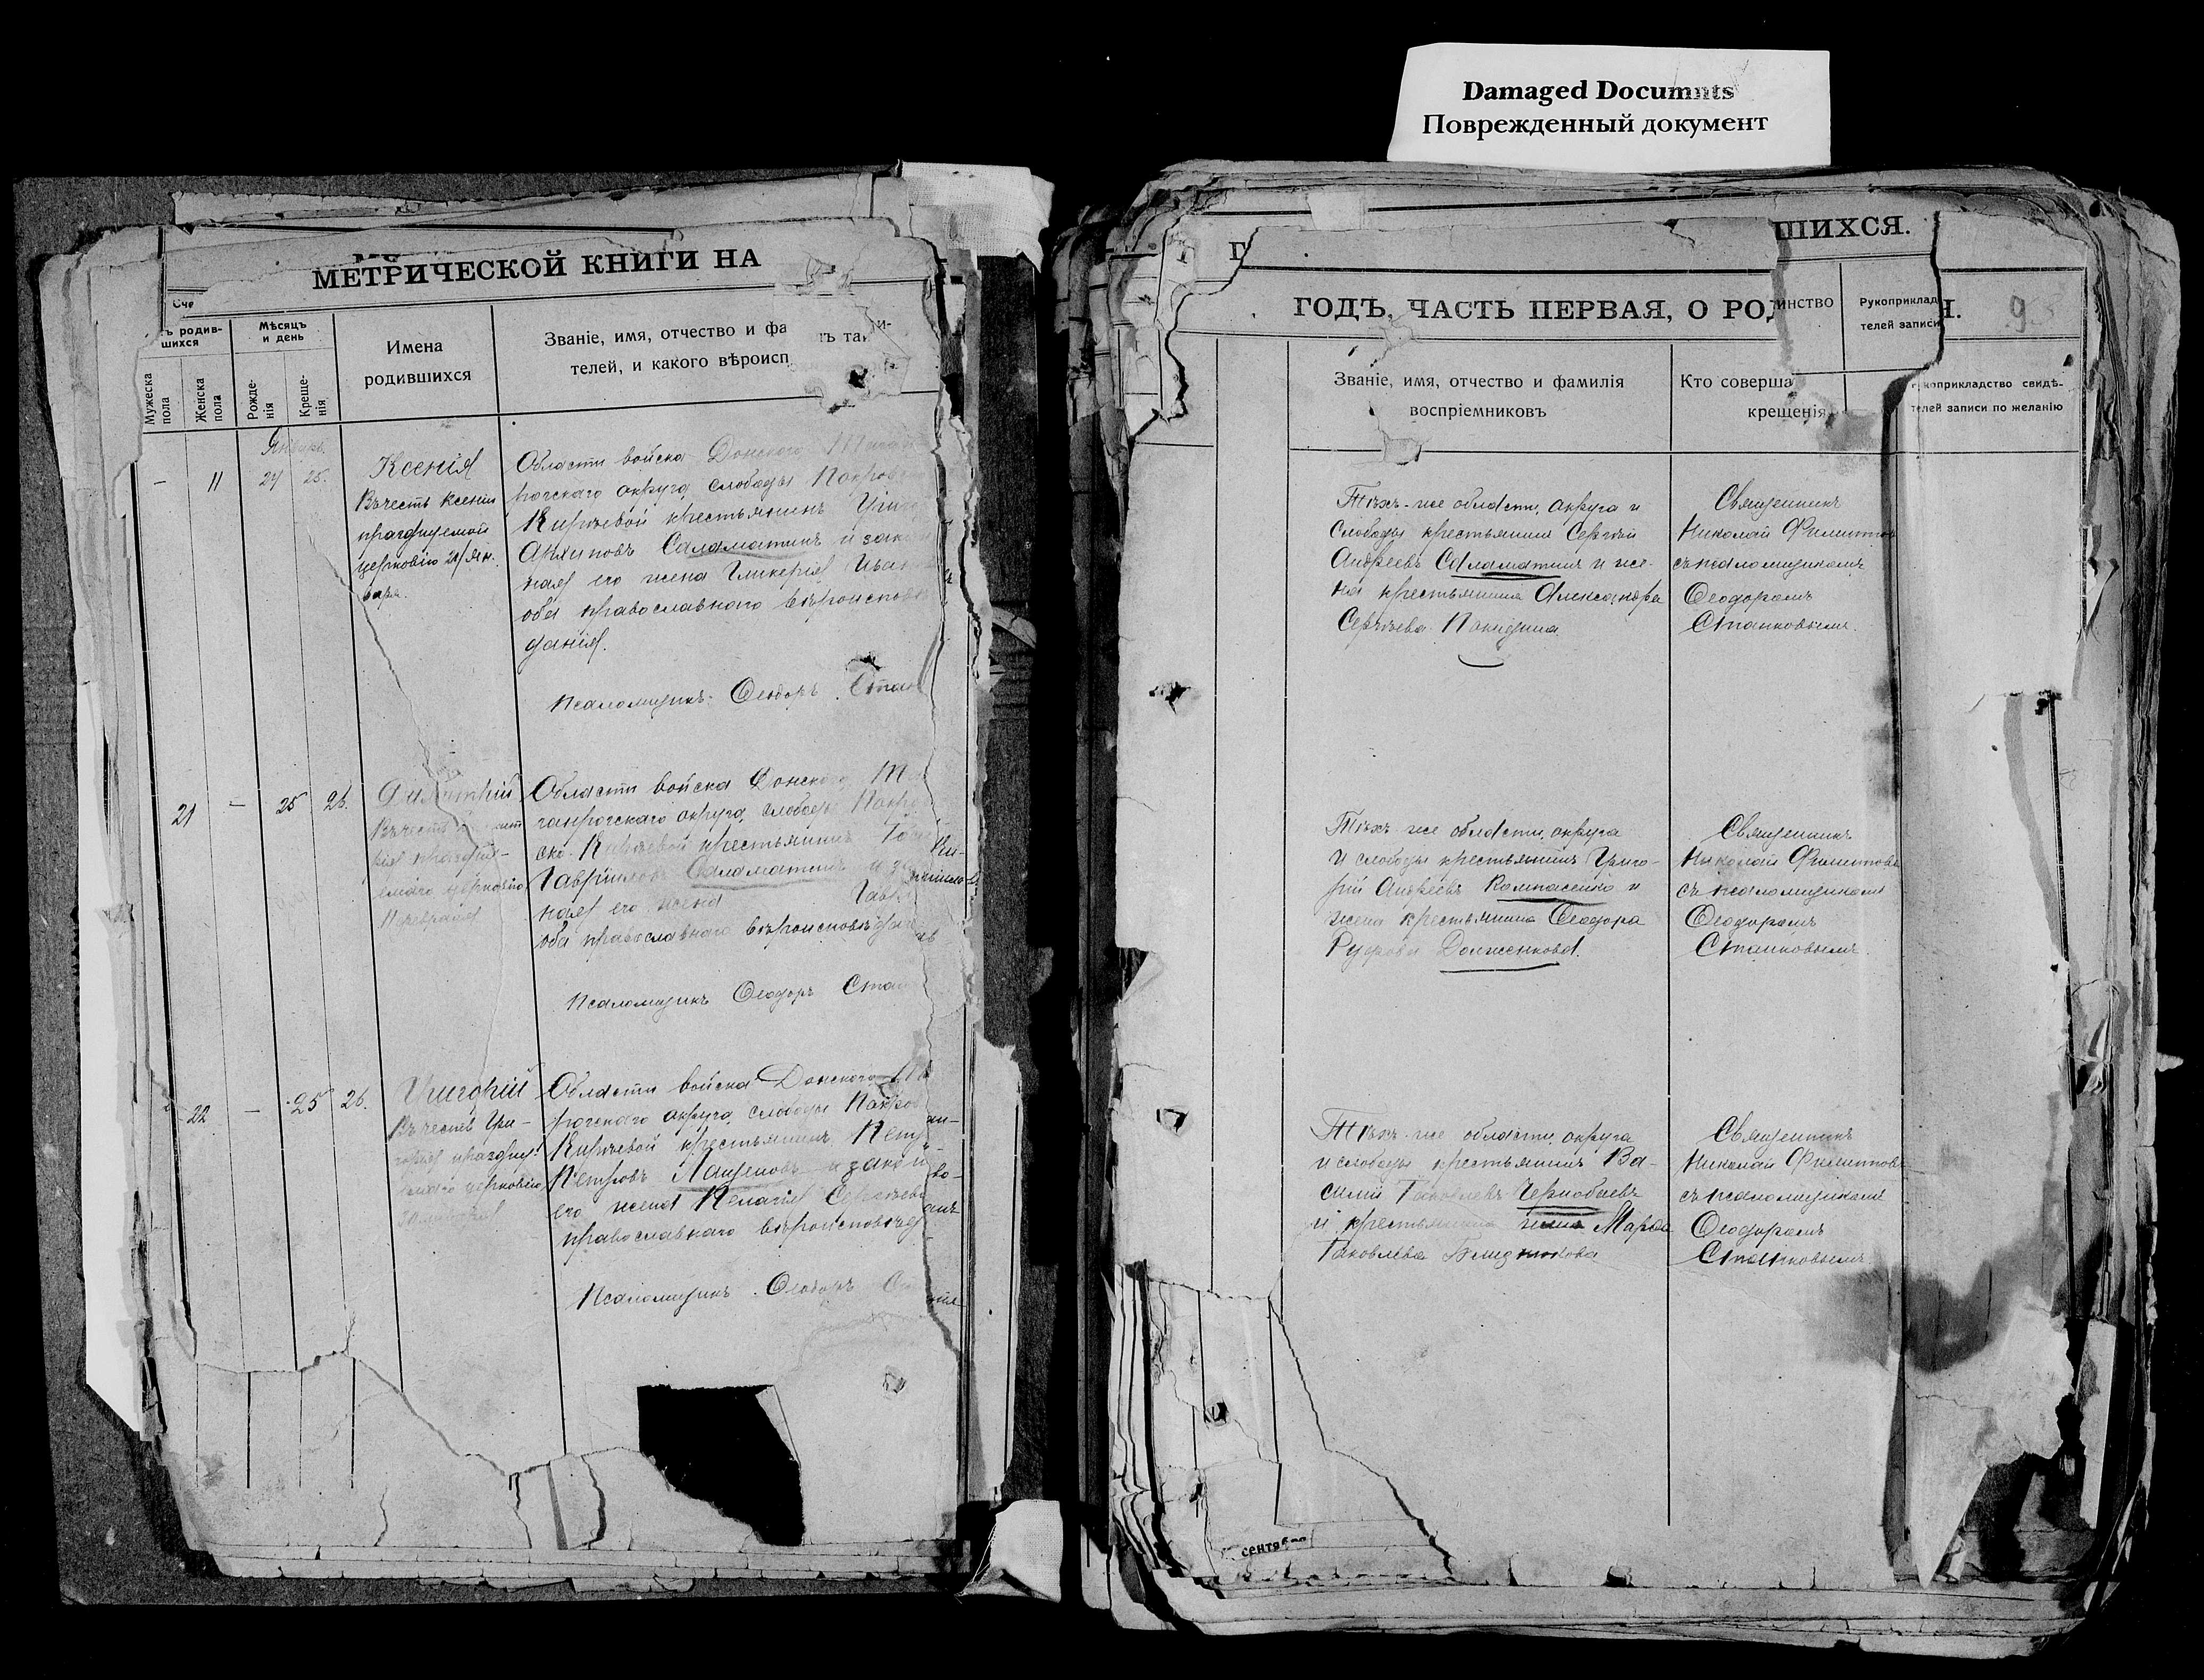 Damaged Documnts
Поврежденный документ
МЕТРИЧЕСКОЙ КНИГИ НА
Сче
ъ родив-
шихся
Мѣсяцъ
и день
Имена
родившихся
Званіе, имя, отчество и фа
телей, и какого вѣроисп
Мужеска
пола
Женска
пола
Рожде-
нія
Креще-
нія
Январь.
— 11 24 25.
Ксенія
Въ честь Ксеніи
празднуемой
церковію 24 Ян-
варя.
Области войска Донского
рогскаго округа, слободы Покров
Кирѣевой крестьянинъ Григо
Саламатинъ и закон
ная его жена Гликерія Иван
оба православнаго вѣроисповѣ
данія.
Псаломщикъ Ѳеодоръ Стан
21 — 25 26.
Димитрій
Въ честь
празд
емаго церковію
Февраля
Области войска Донско
ганрогскаго округа, слободы Покро
ско-Кирѣевой крестьянинъ
Гавріиловъ Саламатинъ и за
ная его жена
оба православнаго вѣроисповѣдан
Псаломщикъ Ѳеодоръ Стан
22 — 25 26.
Григорій
Въ честь Гри-
горія празДну-
емаго церковію
Области войска Донского
рогскаго округа, слободы Покров
Кирѣевой крестьянинъ Петр
Петровъ Лащеновъ и закон
его жена Пелагія Сергѣева
православнаго вѣроисповѣд
Псаломщикъ Ѳеодоръ
ШИХСЯ.
ГОДЪ, ЧАСТЬ ПЕРВАЯ, О РОД
инство
Рукоприклад
телей записи
9
Званіе, имя, отчество и фамилія
воспріемниковъ
Кто соверша
крещенія
коприкладство свидѣ-
телей записи по желанію
Тѣхъ-же области, округа и
слободы крестьянинъ Сергѣй
Андреевъ Саламатинъ и же-
на крестьянина Александра
Сергѣева
Священникъ
Николай Филиппов
съ псаломщикомъ
Ѳеодоромъ
Станковымъ.
Тѣхъ же области, округа
и слободы крестьянинъ Григо-
рій Андреевъ Компасенко и
жена крестьянина Ѳеодора
Долженкова.
Священникъ
Николай Филиппов
съ псаломщикомъ
Ѳеодоромъ
Станковымъ.
Тѣхъ-же области, округа
и слободы крестьянинъ Ва-
силій Яковлевъ Чернобаевъ
и крестьянина жена Марѳа
Яковлева
Священникъ
Николай Филиппов
съ псаломщикомъ
Ѳеодоромъ
Станковымъ
сентяб